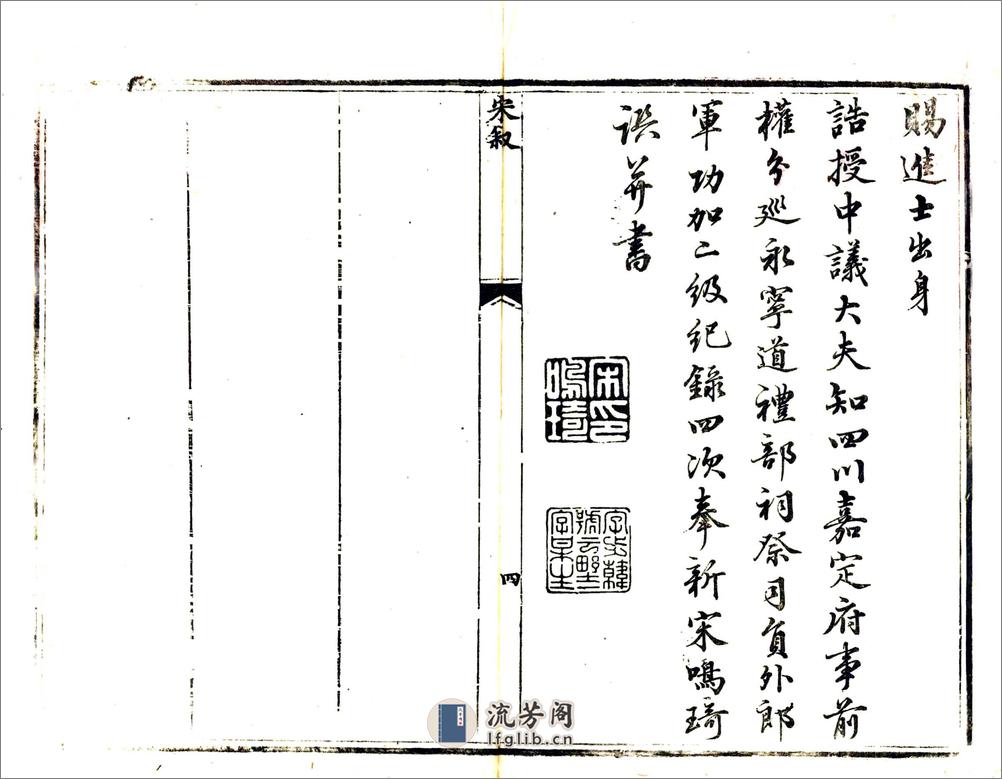 賜進士出身
誥授中議大夫知四川嘉定府事前
權分巡永寧道禮部祠祭司員外郎
軍功加二級紀錄四次奉新宋鳴琦
譔并書
宋印
鳴琦
宋叙
四
流芳阁
lfglib.cn